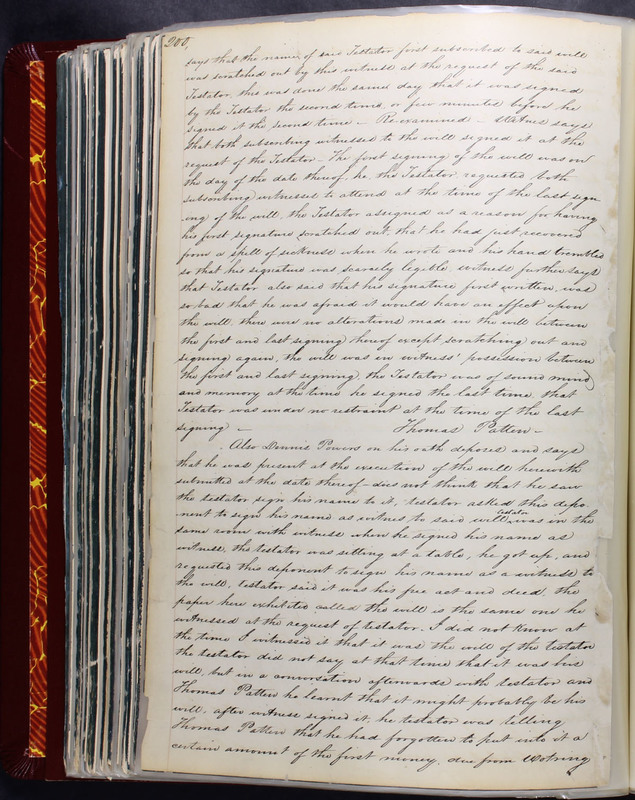 200,
says that the name of said Testator first subscribed to said will
was scratched out by this witness at the request of the said
Testator, this was done the same day that it was signed
by the Testator the second time, or few minutes before he
signed it the second time – Reexamined – Witness says
that both subscribing witnesses to the will signed it at the
request of the Testator – The first signing of the will was on
the day of the date thereof, he, the Testator requested both
subscribing witnesses to attend at the time of the last sign-
ing of the will, the Testator assigned as a reason for having
his first signature scratched out, that he had just recovered
from a spell of sickness when he wrote and his hand trembled
so that his signature was scarsely legible, witness further says
that Testator also said that his signature first written, was
so bad that he was afraid it would have an effect upon
the will, there were no alterations made in the will between
the first and last signing thereof except scratching out and
signing again, the will was in witness' possession between
the first and last signing, the Testator was of sound mind
and memory at the time he signed the last time, that
Testator was under no restraint at the time of the last
signing – Thomas Patten –
Also Dennis Powers on his oath deposes and says
that he was present at the execution of the will herewith
submitted at the date thereof – does not think that he saw
the testator sign his name to it, testator asked this depo-
nent to sign his name as witness to said will, testator was in the
same room with witness when he signed his name as
witness, the testator was setting at a table, he got up, and
requested this deponent to sign his name as a witness to
the will, testator said it was his free act and deed, the
paper here exhibited called the will is the same one he
witnessed at the request of testator. I did not know at
the time I witnessed it that it was the will of the testator
the testator did not say at that time that it was his
will, but in a conversation afterwards with testator and
Thomas Patten he learnt that it might probably be his
will, after witness signed it, he testator was telling
Thomas Patten that he had forgotten to put into it a
certain amount of the first money, due from Wotring